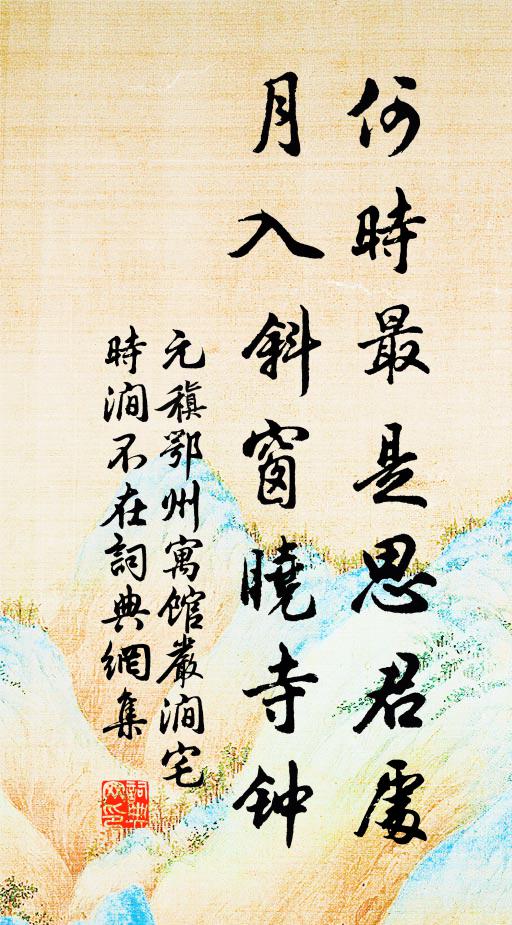 何時最是思君處
月入斜窗曉寺钟
元稹鄂州寓館嚴澗宅
時澗不在詞典網集
詞典网印